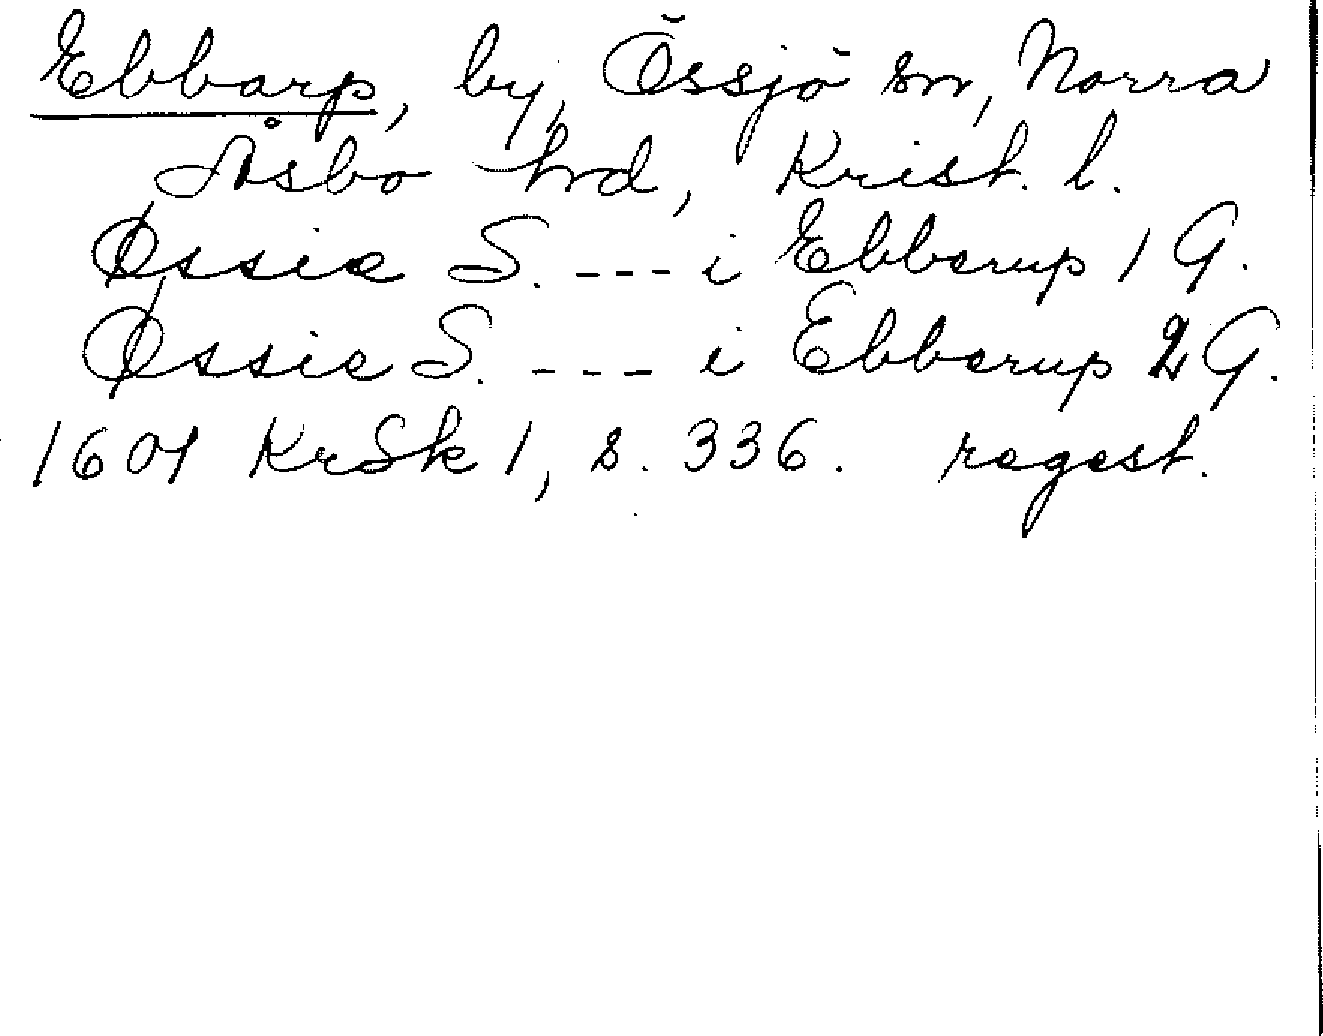 Ebbarp, by, Össjö sn, Norra
Åsbo hrd, Krist. l.
Øssie S. --- i Ebberup 1 G.
Øssie S. --- i Ebberup 2 G.
1601 KrSk 1, s. 336. regest.